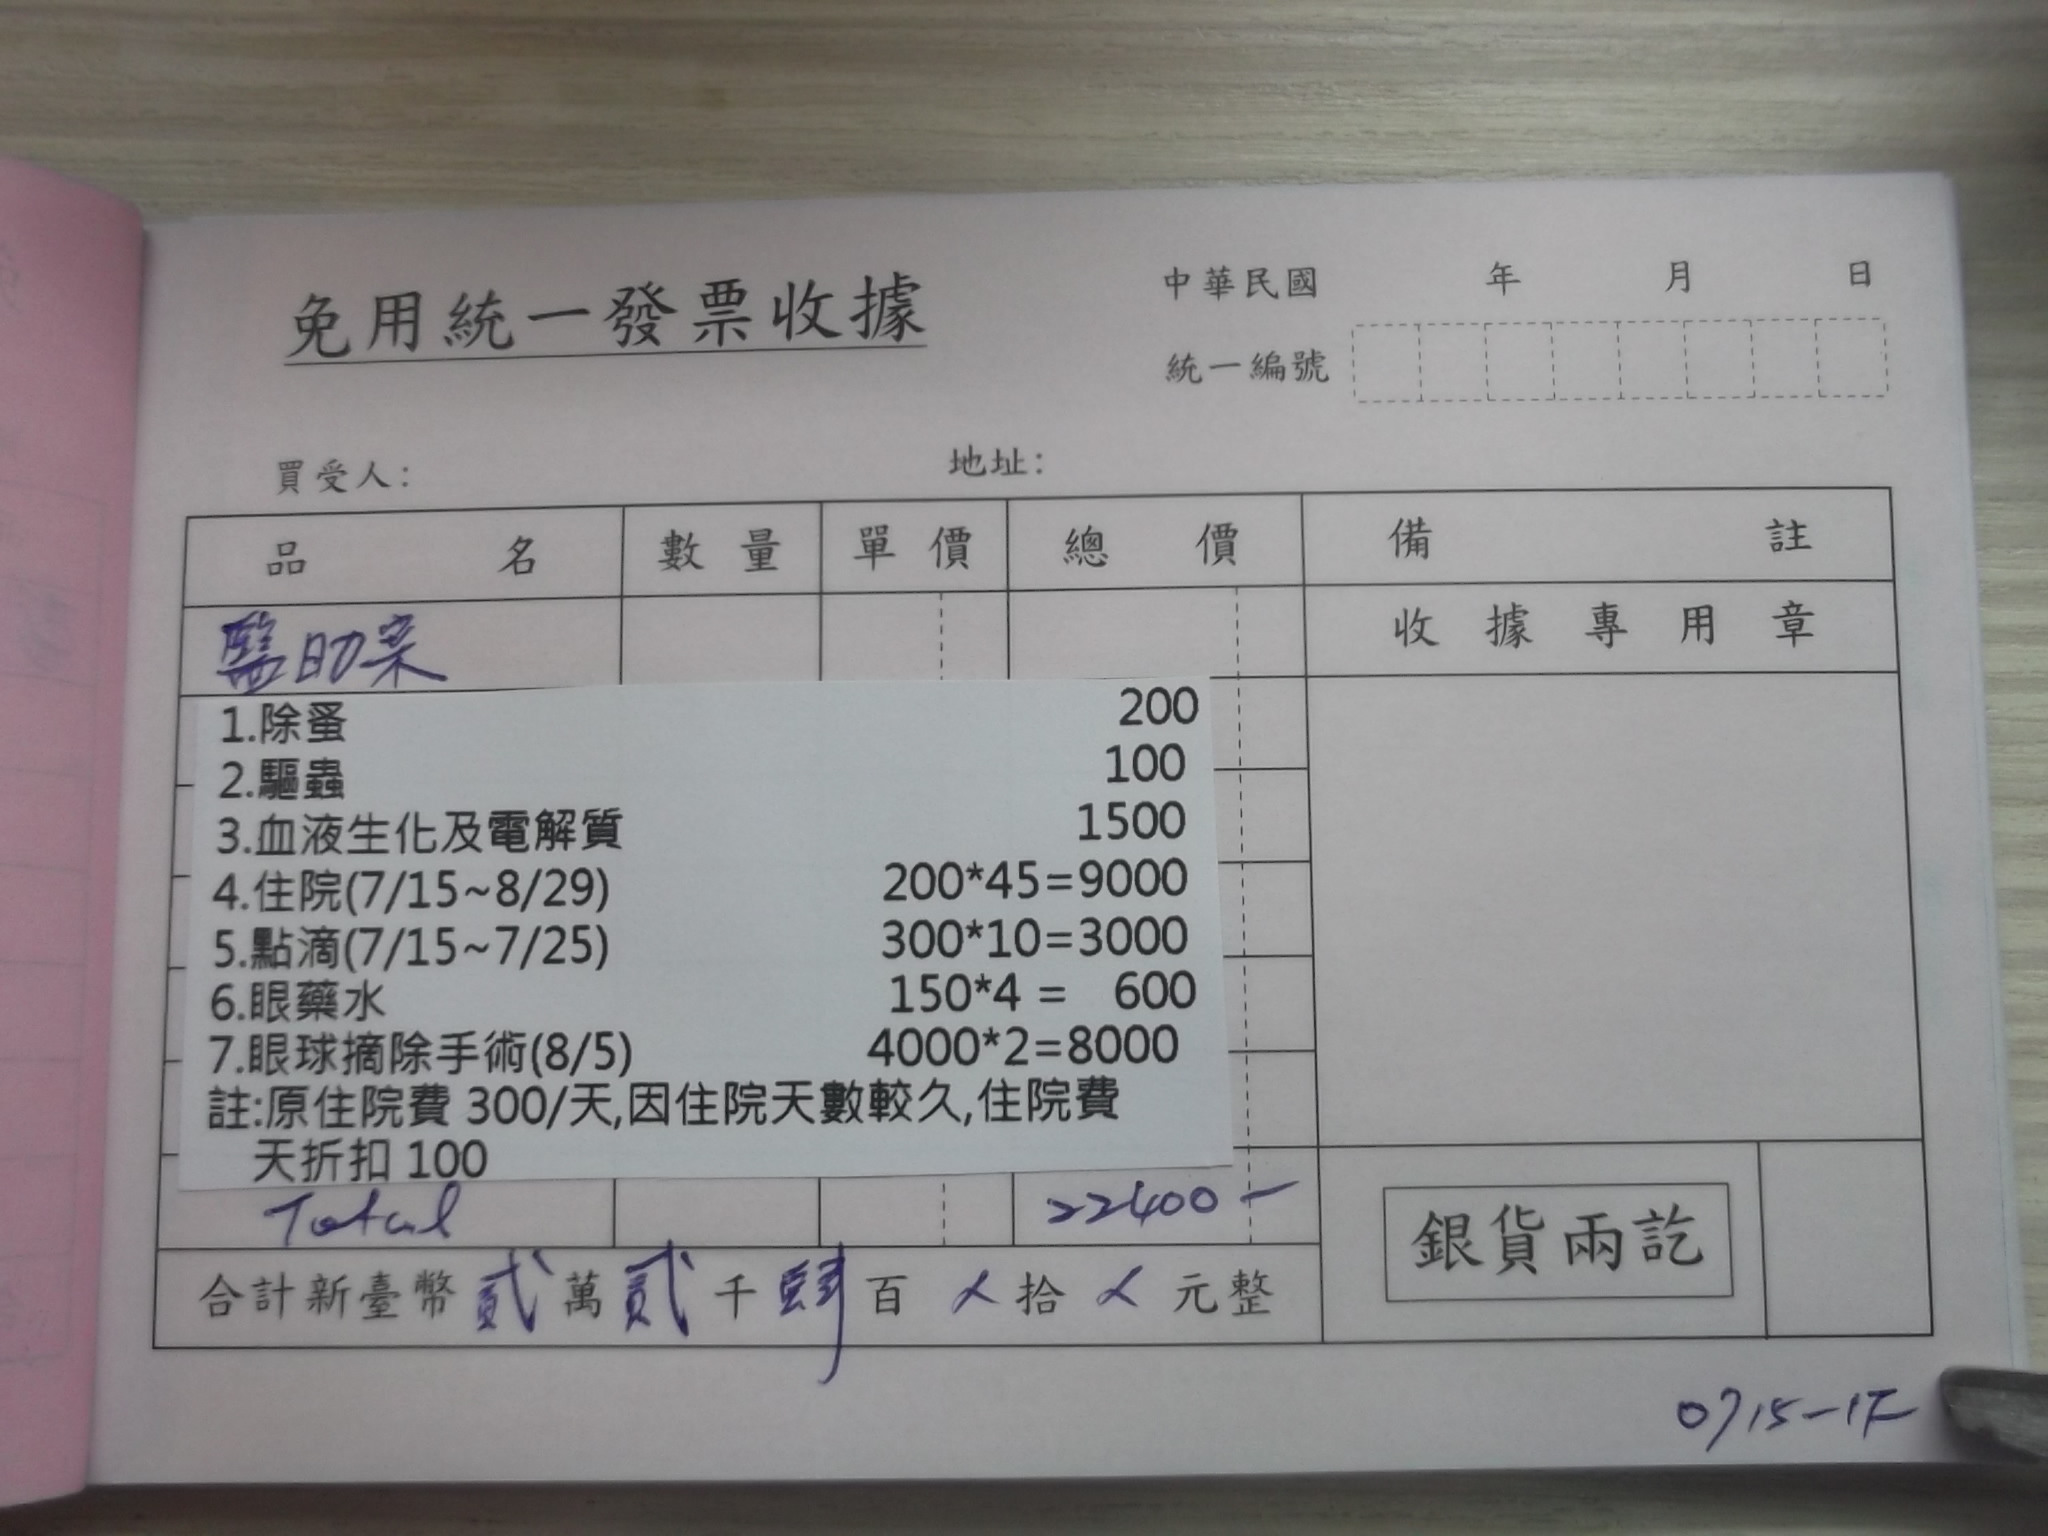 免用統一發票收據
中華民國 年 月 日
統一編號
買受人: 地址:
品名 數量 單價 總價 備註
醫助案 收據專用章
1.除蚤 200
2.驅蟲 100
3.血液生化及電解質 1500
4.住院(7/15~8/29) 200*45=9000
5.點滴(7/15~7/25) 300*10=3000
6.眼藥水 150*4 = 600
7.眼球摘除手術(8/5) 4000*2=8000
註:原住院費 300/天,因住院天數較久,住院費
天折扣 100
Total 22400-
合計新臺幣貳萬貳千肆百 拾 元整
銀貨兩訖
0715-1F